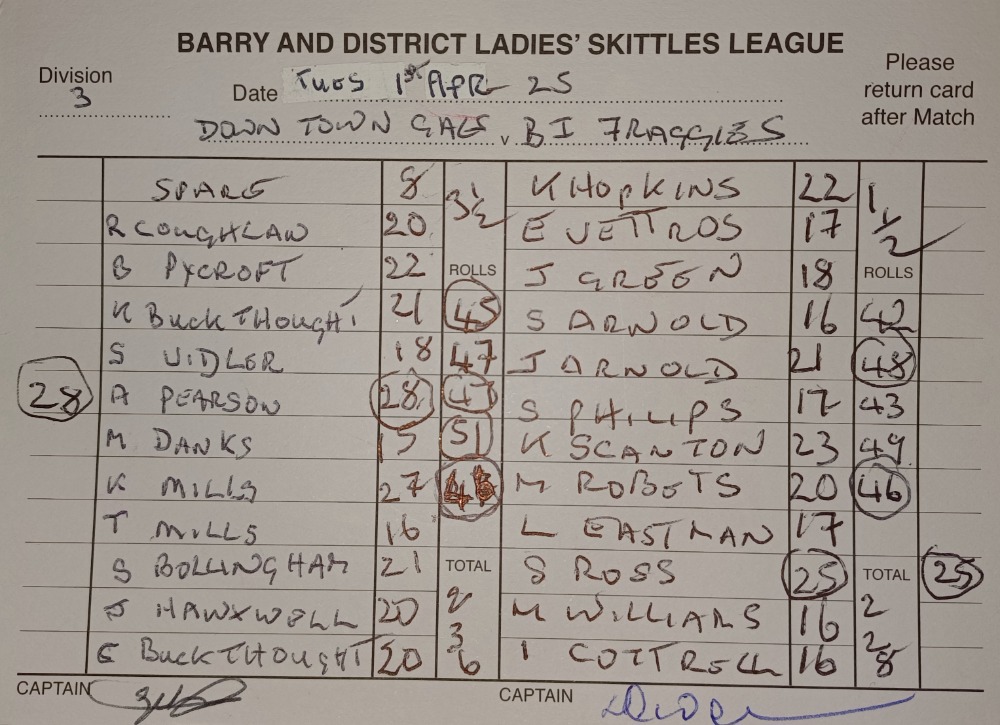 BARRY AND DISTRICT LADIES' SKITTLES LEAGUE
Division 3
Date TUES 1st APR 25
Please return card after Match
DOWN TOWN GALS v BI FRAGGLES
SPARE 8 3½ K HOPKINS 22 1½
R COUGHLAN 20 E VETTROS 17
B PYCROFT 22 ROLLS J GREEN 18 ROLLS
K BUCKTHOUGHT 21 45 S ARNOLD 16 42
S VIDLER 18 47 J ARNOLD 21 48
28 A PEARSON 28 47 S PHILIPS 17 43
M DANKS 15 51 K SCANTON 23 49
K MILLS 27 46 M ROBOTS 20 46
T MILLS 16 L EASTMAN 17
S BOLLINGHAM 21 TOTAL S ROSS 25 TOTAL 25
J HAWXWELL 20 2 M WILLIAMS 16 2
E BUCKTHOUGHT 20 3 6 I COTTRELL 16 2 8
CAPTAIN CAPTAIN